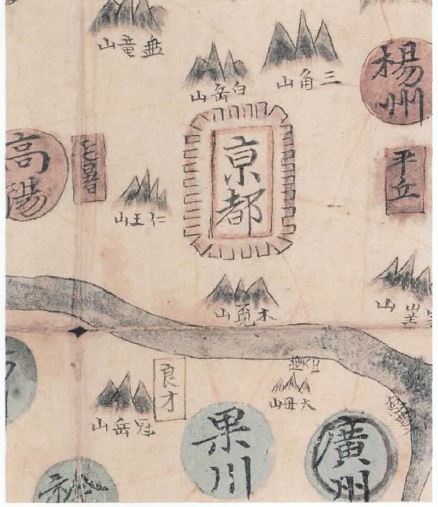 三角山
白岳山
楊州
京都
平丘
高陽
仁王山
木覓山
良才
大母山
冠岳山
果川
廣州